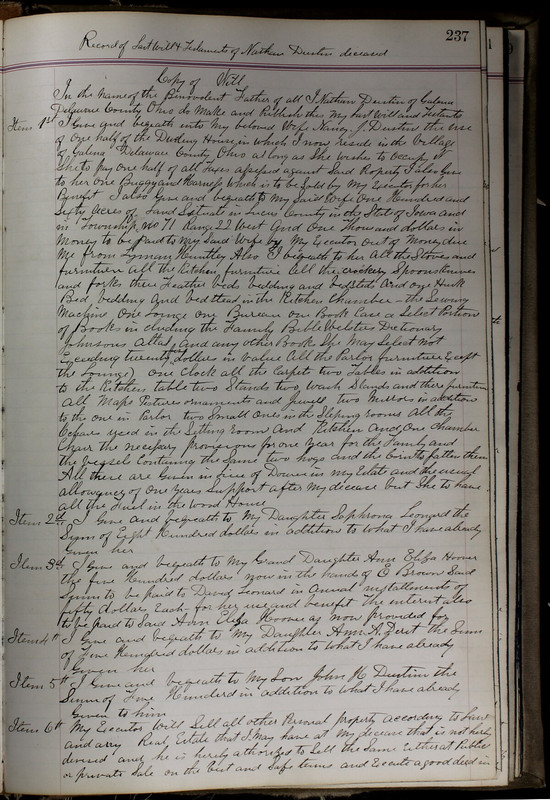 237
Record of Last Will & Testaments of Nathan Dustin diceased
Copy of Will
In the name of the Benevolent Father of all I Nathan Dustin of Galena
Delaware County Ohio do Make and Publish this My last Will and Testament
Item 1st I Give and bequeath unto My beloved Wife Nancy J. Dustin the use
of one half of the Dwelling House in which I now reside in the Village
of Galena Delaware County Ohio as long as She wishes to occupy it
She to pay one half of all Taxes assessed against Said Property I also give
to her One Buggy and Harness Which is to be Sold by My Executor for her
Benefit I also Give and bequeath to My Said Wife One Hundred and
Sixty Acres of Land Situate in County in the State of Iowa and
in Township No 71 Range 22 West And One Thousand dollars in
Money to be paid to My Said Wife by My Executor out of Money due
Me from Lyman Huntley Also I bequeath to her All the Stoves and
furniture All the Kitchen furniture All the crockery Spoons Knives
and forks three Feather beds bedding and bedsteads And one Husk
Bed bedding And bedstead in the Kitchen Chamber - the Sewing
Machine One Lounge One Bureau One Book Case a Select Portion
of Books including the Family Bible Websters Dictionary
Johnsons Atlas And any other Books She May Select not
Exceeding twenty dollars in Value All the Parlor furniture Except
the Lounge) One Clock all the Carpet two Tables in addition
to the Kitchen table two Stands two Wash Stands and there furniture
All Maps Pictures ornaments and Jewels two Mirrors in addition
to the one in Parlor two Small Ones in the Sleeping rooms All the
Chairs used in the Sitting Room And Kitchen And One Chamber
Chair the necessary provisions for one Year for the Family and
the Vessels Containing the Same two hogs and the corn to fatten them
All these are Given in lieu of Dower in my Estate and the usual
allowance of One Years Support after My decease but She to have
all the fuel in the Wood House
Item 2nd I Give and bequeath to My Daughter Sophrona Leonard the
Sum of Eight Hundred dollars in addition to What I have already
Given her
Item 3d I Give and bequeath to My Grand Daughter Ann Eliza Hoover
the five Hundred dollars now in the hands of E Brown Said
Sum to be paid to David Leonard in Annual installments of
fifty dollars Each for her use and benefit the interest also
to be paid to Said Ann Eliza Hoover as now provided for
Item 4th I Give and bequeath to My Daughter Ann A. the Sum
of Five Hundred dollars in addition to What I have already
Given her
Item 5th I Give and bequeath to My Son John H Dustin the
Sum of Five Hundred in addition to What I have already
Given to him
Item 6th My Executor Will Sell all other Personal property according to Law
and any Real Estate that I may have at My decease that is not herein
devised and he is hereby authorized to Sell the Same Either at Public
or private Sale on the best and Safe terms and Execute a good deed in